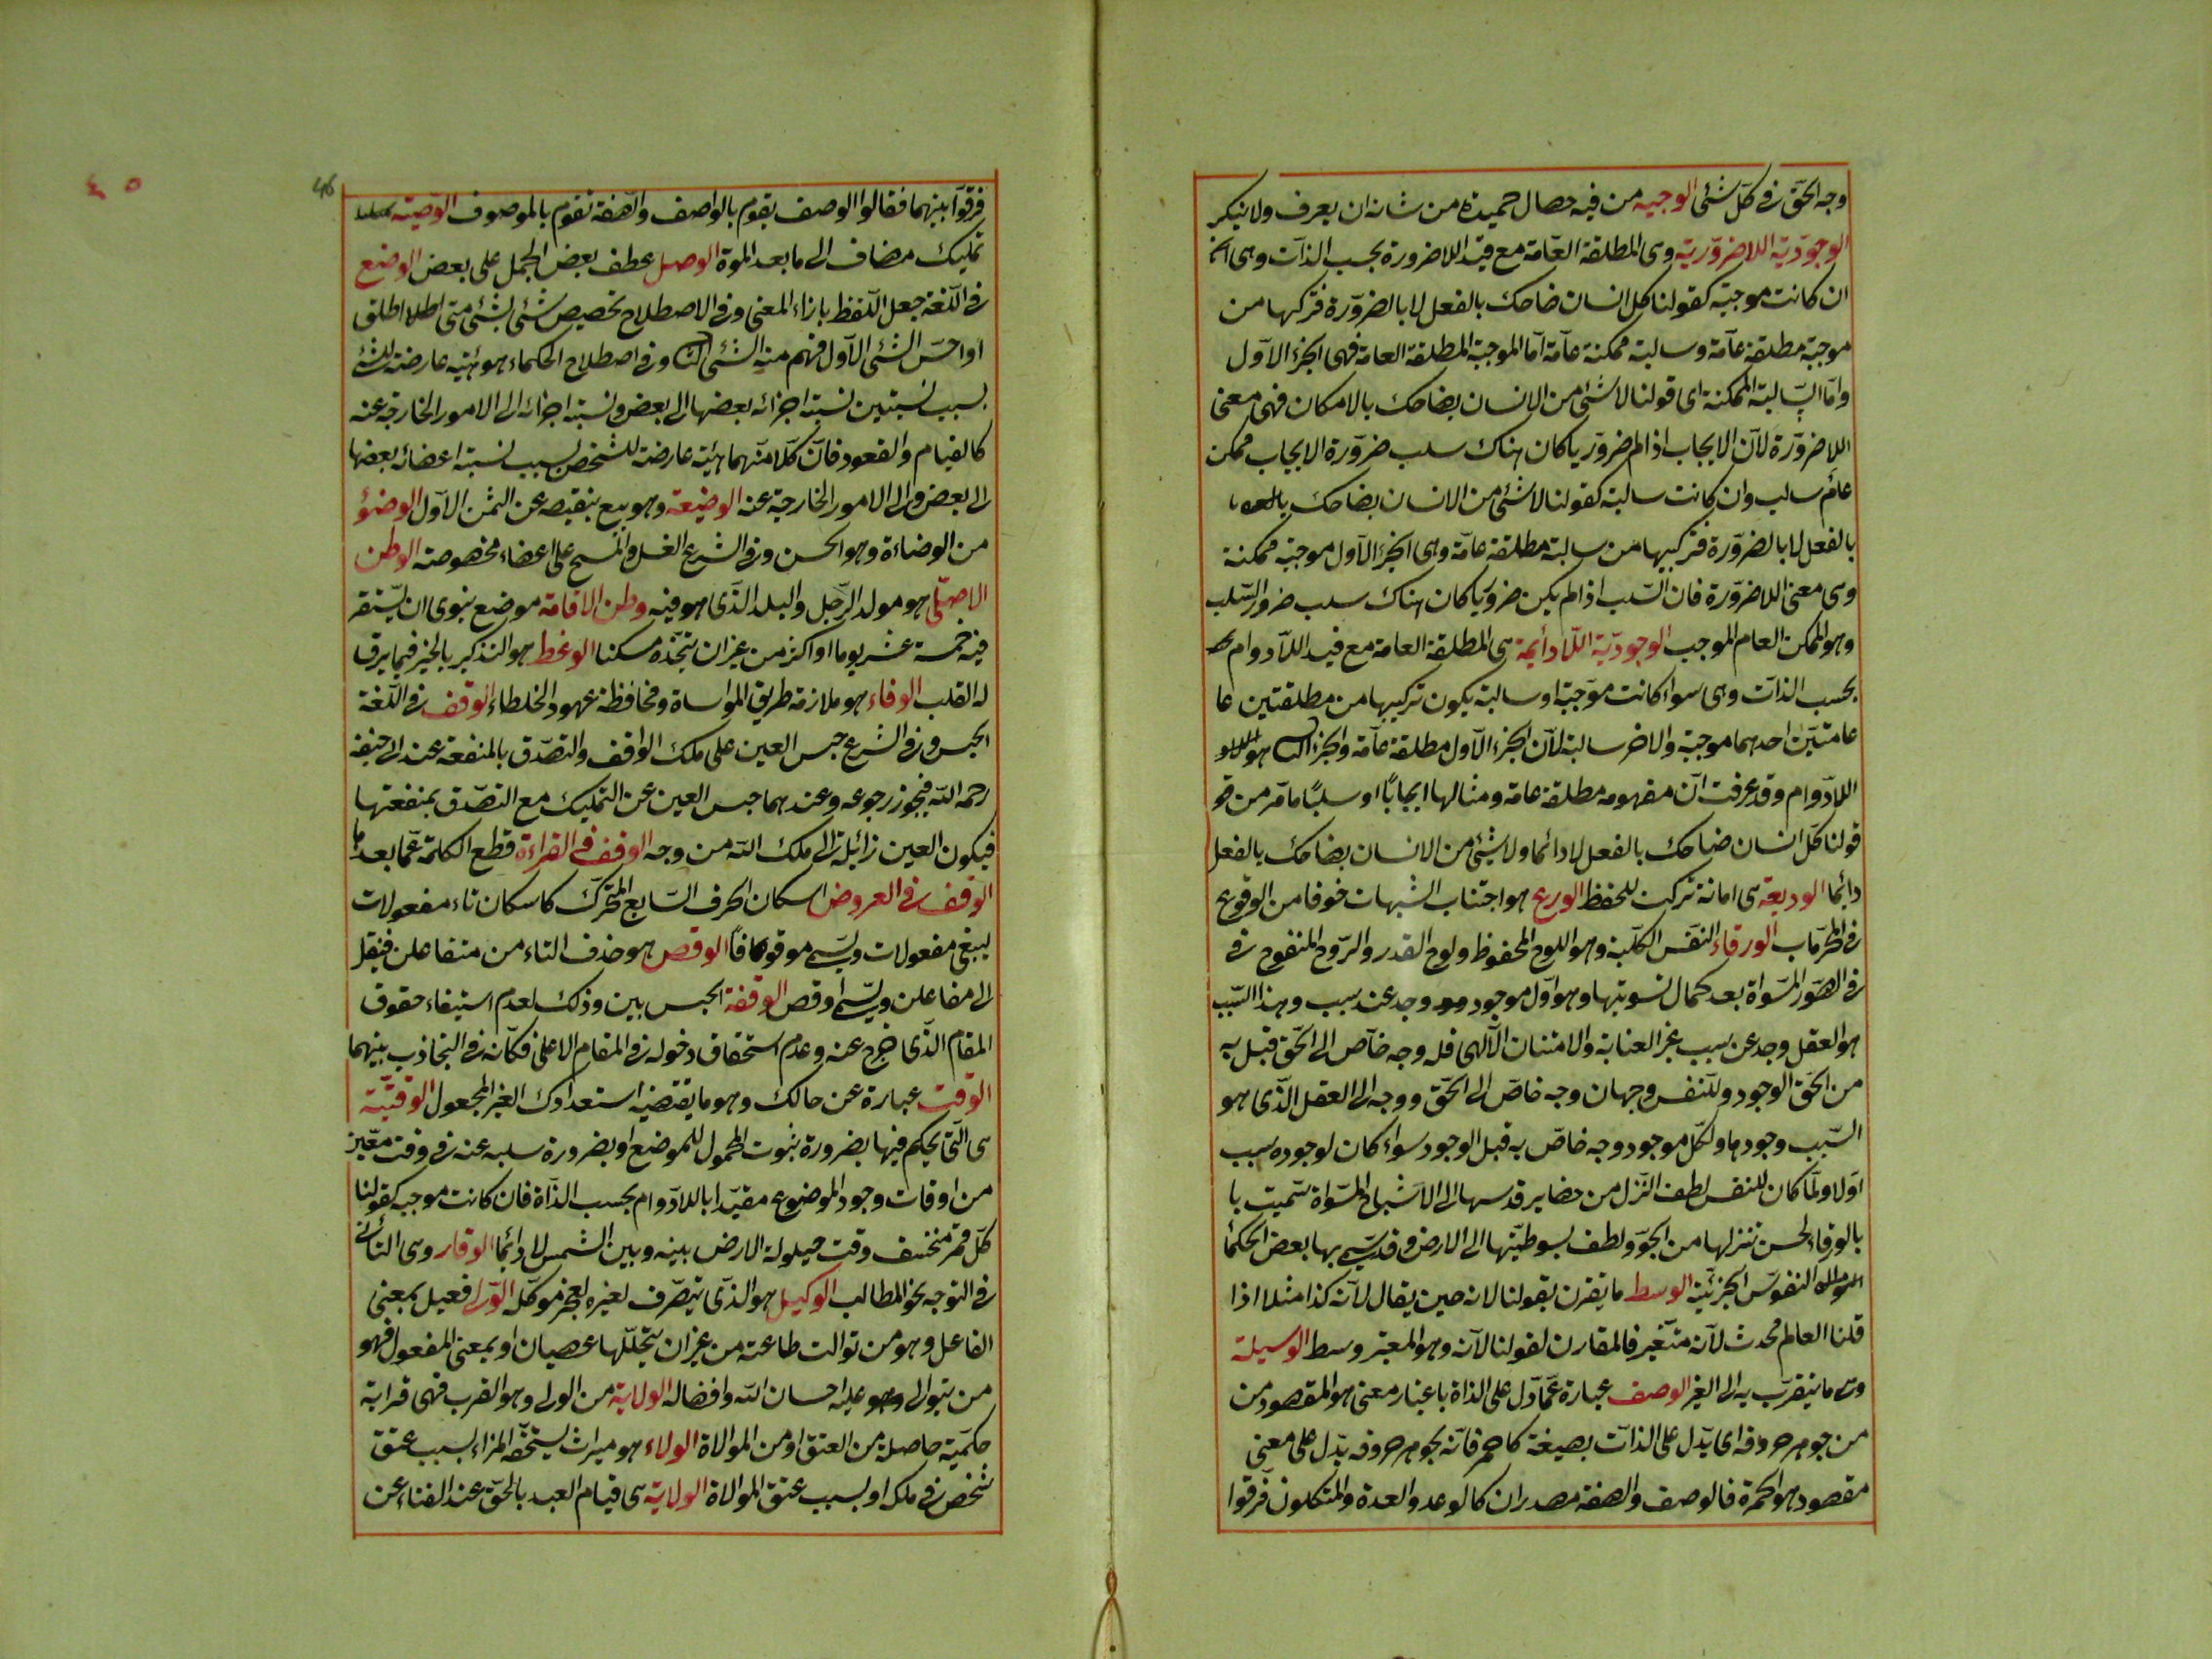 وجه الحق فى كل شئى الوجيه من فيه خصال حميدة من شانه ان يعرف ولا ينكر
الوجودية اللا ضرورية وهى المطلقة العامة مع قيد اللا ضرورة بحسب الذات وهى
ان كانت موجبة كقولنا كل انسان ضاحك بالفعل لا بالضرورة فتركبها من
موجبة مطلقة عامة وسالبة ممكنة عامة اما الموجبة المطلقة العامة فهى الجزء الاول
واما السالبة الممكنة اى قولنا لا شئى من الانسان بضاحك بالامكان فهى معنى
اللا ضرورة لان الايجاب اذا لم ضروريا كان هناك سلب ضرورة الايجاب ممكن
عام سالب وان كانت سالبة كقولنا لا شئى من الانسان بضاحك
بالفعل لا بالضرورة فتركيبها من سالبة مطلقة عامة وهى الجزء الاول موجبة ممكنة
وهى معنى اللا ضرورة فان السلب اذا لم يكن ضروريا كان هناك سلب ضرور السلب
وهو الممكن العام الموجب الوجودية اللا دائمة هى المطلقة العامة مع قيد اللا دوام
بحسب الذات وهى سواء كانت موجبة او سالبة يكون تركيبها من مطلقتين عا
عامتين احدهما موجبة والاخر سالبة لان الجزء الاول مطلقة عامة والجزء الثا هو
اللا دوام وقد عرفت ان مفهومه مطلقة عامة ومثالها ايجابا او سلبا ما مر من قو
قولنا كل انسان ضاحك بالفعل لا دائما ولا شئى من الانسان بضاحك بالفعل
دائما الوديعة هى امانة تركت للحفظ الورع هو اجتناب الشبهات خوفا من الوقوع
فى المحرمات الورقاء النفس الكلية وهو اللوح المحفوظ ولوح القدر والروح المنفوح فى
فى الصور المسواة بعد كمال تسويتها وهو اول موجود وجد عند سبب وهذا السبب
هو العقل وجد عن سبب غير العناية والامتنان الالهى فله وجه خاص الى الحق قبل به
من الحق الوجود وللنفس وجهان وجه خاص الى الحق ووجه الى العقل الذى هو
السبب وجودها ولكل موجود وجه خاص به قبل الوجود سواء كان لوجوده سبب
اولا ولما كان للنفس لطف التنزل من حضاير قدسها الى الاشباح المسواة سميت با
بالورقاء لحسن تنزلها من الجو ولطف بسوطيتها الى الارض وقد سمى بها بعض الحكماء
النفوس الجزئية الوسط ما يقرن بقولنا لانه حين يقال لانه كذا مثلا اذا
قلنا العالم محدث لانه متغير فالمقارن لقولنا لانه وهو المعتبر وسط الوسيلة
وهى ما يتقرب به الى الغير الوصف عبارة عما دل على الذاة باعتبار معنى هو المقصود من
من جوهر حروفه اى يدل على الذات بصيغة كاحمر فانه بجوهر حروفه يدل على معنى
مقصود هو الحمرة فالوصف والصفة مصدران كالوعد والعدة والمتكلمون فرقوا
46
٤٥
فرقوا بينهما فقالوا الوصف يقوم بالواصف والصفة تقوم بالموصوف الوصية
تمليك مضاف الى ما بعد الموة الوصل عطف بعض الجمل على بعض الوضع
فى اللغة جعل اللفظ بازاء المعنى وفى الاصطلاح تخصيص شئى بشئى متى اطلق
او احس الشئى الاول فهم منه الشئى الثا وفى اصطلاح الحكماء هو هيئة عارضة للشئ
بسبب نسبتين نسبة اجزائه بعضها الى بعض ونسبة اجزائه الى الامور الخارجة عنه
كالقيام والقعود فان كلا منهما هيئة عارضة للشخص بسبب نسبة اعضائه بعضها
الى بعض والى الامور الخارجية عنه الوضيعة وهو بيع بنقيصه عن الثمن الاول الوضوء
من الوضاءة وهو الحسن وفى الشرع الغسل والمسح على اعضاء مخصوصة الوطن
الاصلى هو مولد الرجل والبلد الذى هو فيه وطن الاقامة موضع ينوى ان يستقر
فيه خمسة عشر يوما او اكثر من غير ان يتخذه مسكنا الوعظ هو التذكير بالخير فيما يرق
له القلب الوفاء هو ملازمة طريق المواساة ومحافظة عهود الخلطاء الوقف فى اللغة
الحبس وفى الشرع حبس العين على ملك الواقف والتصدق بالمنفعة عند ابى حنيفة
رحمه الله فيجوز رجوعه وعندهما حبس العين عن التمليك مع التصدق بمنفعتها
فيكون العين زائلة الى ملك الله من وجه الوقف فى القراءة قطع الكلمة عما بعدها
الوقف فى العروض اسكان الحرف السابع المتحرك كاسكان تاء مفعولات
ليبقى مفعولات ويسمى موقوفا الوقص هو حذف التاء من متفاعلن فينقل
الى مفاعلن ويسمى اوقص الوقفة الحبس بين وذلك لعدم استيفاء حقوق
المقام الذى خرج عنه وعدم استحقاق دخوله فى المقام الاعلى فكانه فى التجاذب بينهما
الوقت عبارة عن حالك وهو ما يقتضيه استعدادك الغير المجعول الوقتية
هى التى يحكم فيها بضرورة ثبوت المحمول للموضع او بضرورة سلبه عنه فى وقت معين
من اوقات وجود الموضوع مقيدا باللا دوام بحسب الذاة فان كانت موجبه كقولنا
كل قمر منخسف وقت حيلولة الارض بينه وبين الشمس لا دائما الوقار وهى التأنى
فى التوجه نحو المطالب الوكيل هو الذى يتصرف لغيره لعجز موكله الولى فعيل بمعنى
الفاعل وهو من توالت طاعته من غير ان يتخللها عصيان او بمعنى المفعول فهو
من يتوالى عليه احسان الله وافضاله الولاية من الولى وهو القرب فهى قرابة
حكمية حاصلة من العتق او من الموالاة الولاء هو ميراث يستحقه المراء بسبب عتق
شخص فى ملكه او بسبب عتق الموالاة الولاية هى قيام العبد بالحق عند الفناء عن